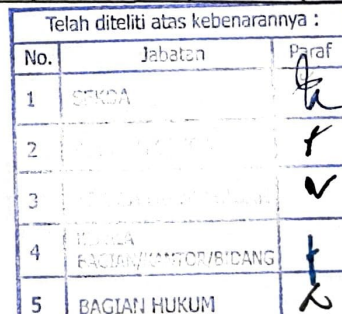 Telah diteliti atas kebenarannya :
No. Jabatan Paraf
1 SEKDA
2
3
4 KEPALA
BAGIAN/KANTOR/BIDANG
5 BAGIAN HUKUM